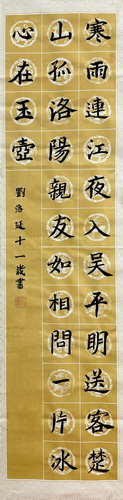 寒雨連江夜入吴平明送客楚
山孤洛陽親友如相問一片冰
心在玉壺
劉洛廷十一歲書